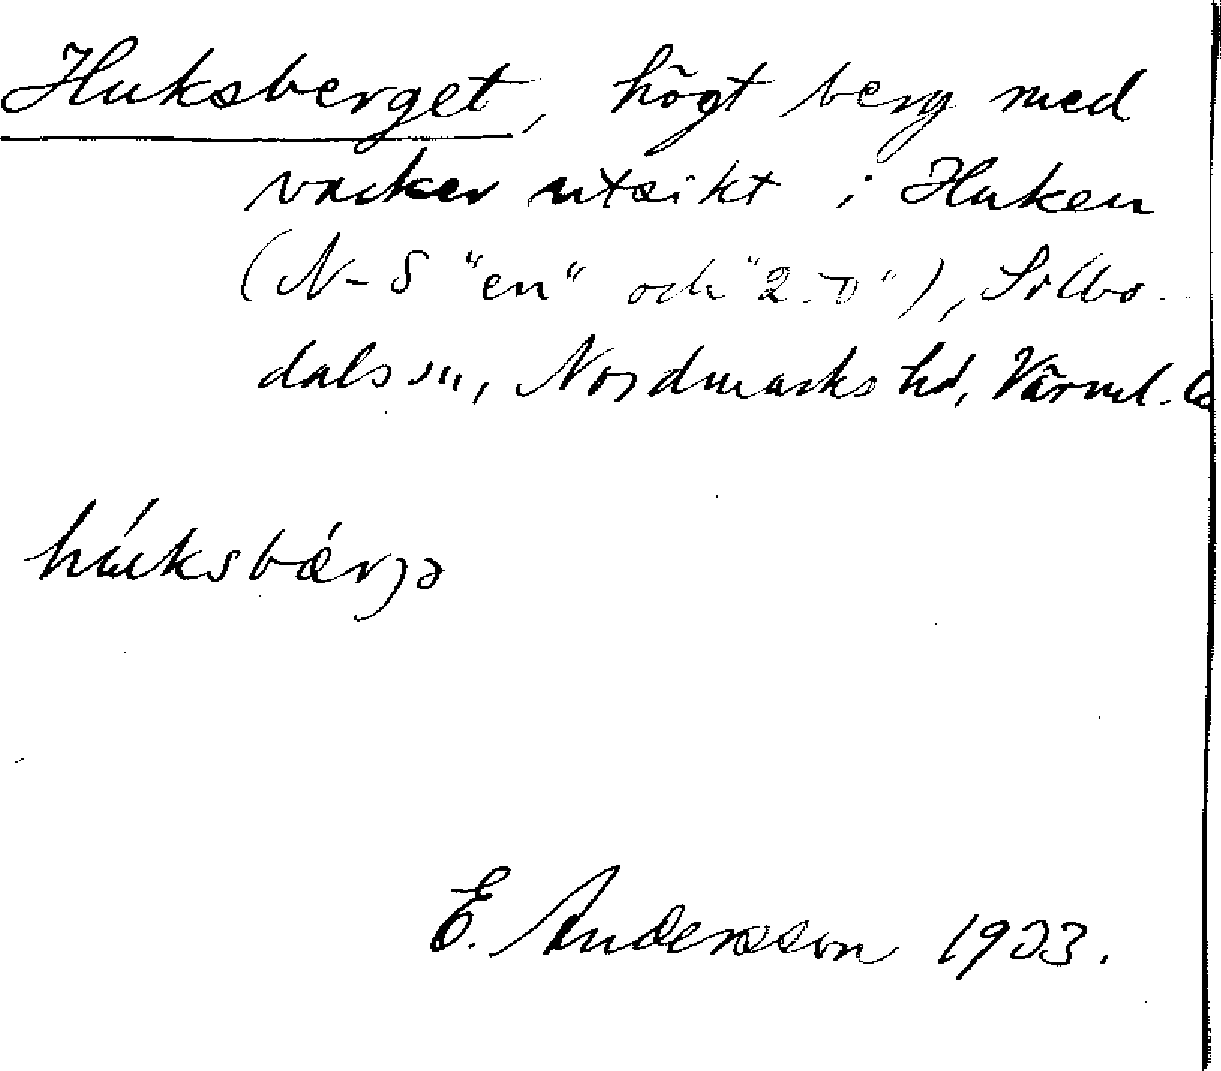 Huksberget, högt berg med
vacker utsikt i Huken
(N-S "en" och "2-0"), Sillbo-
dals sn, Nordmarks hd, Värml.
húksbǽrjə
E. Andersson 1923.